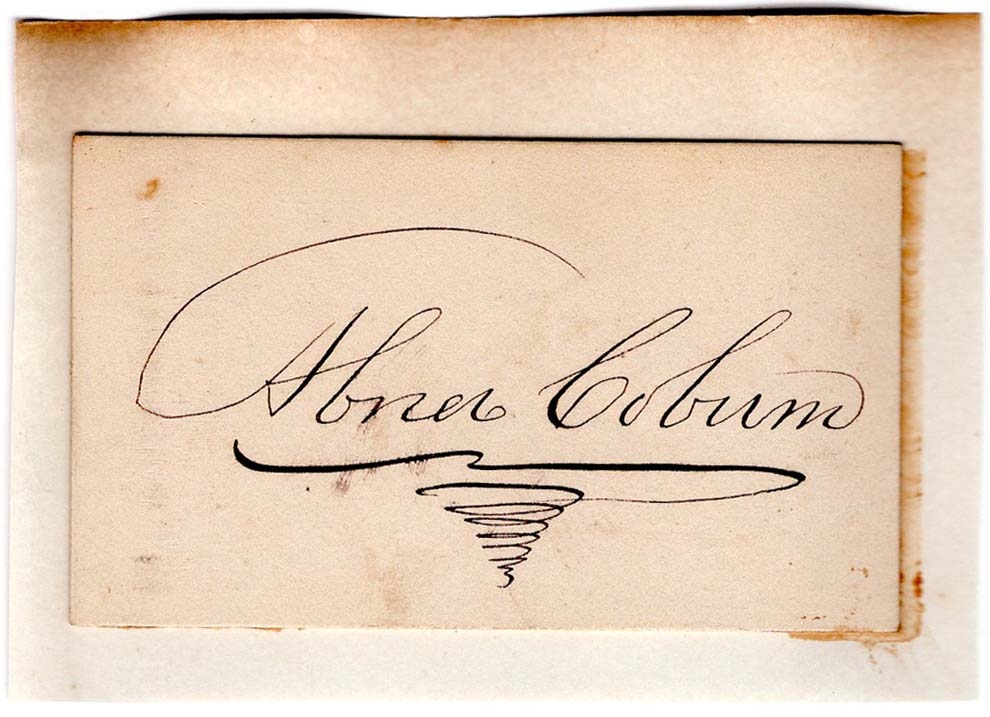 Abner Coburn